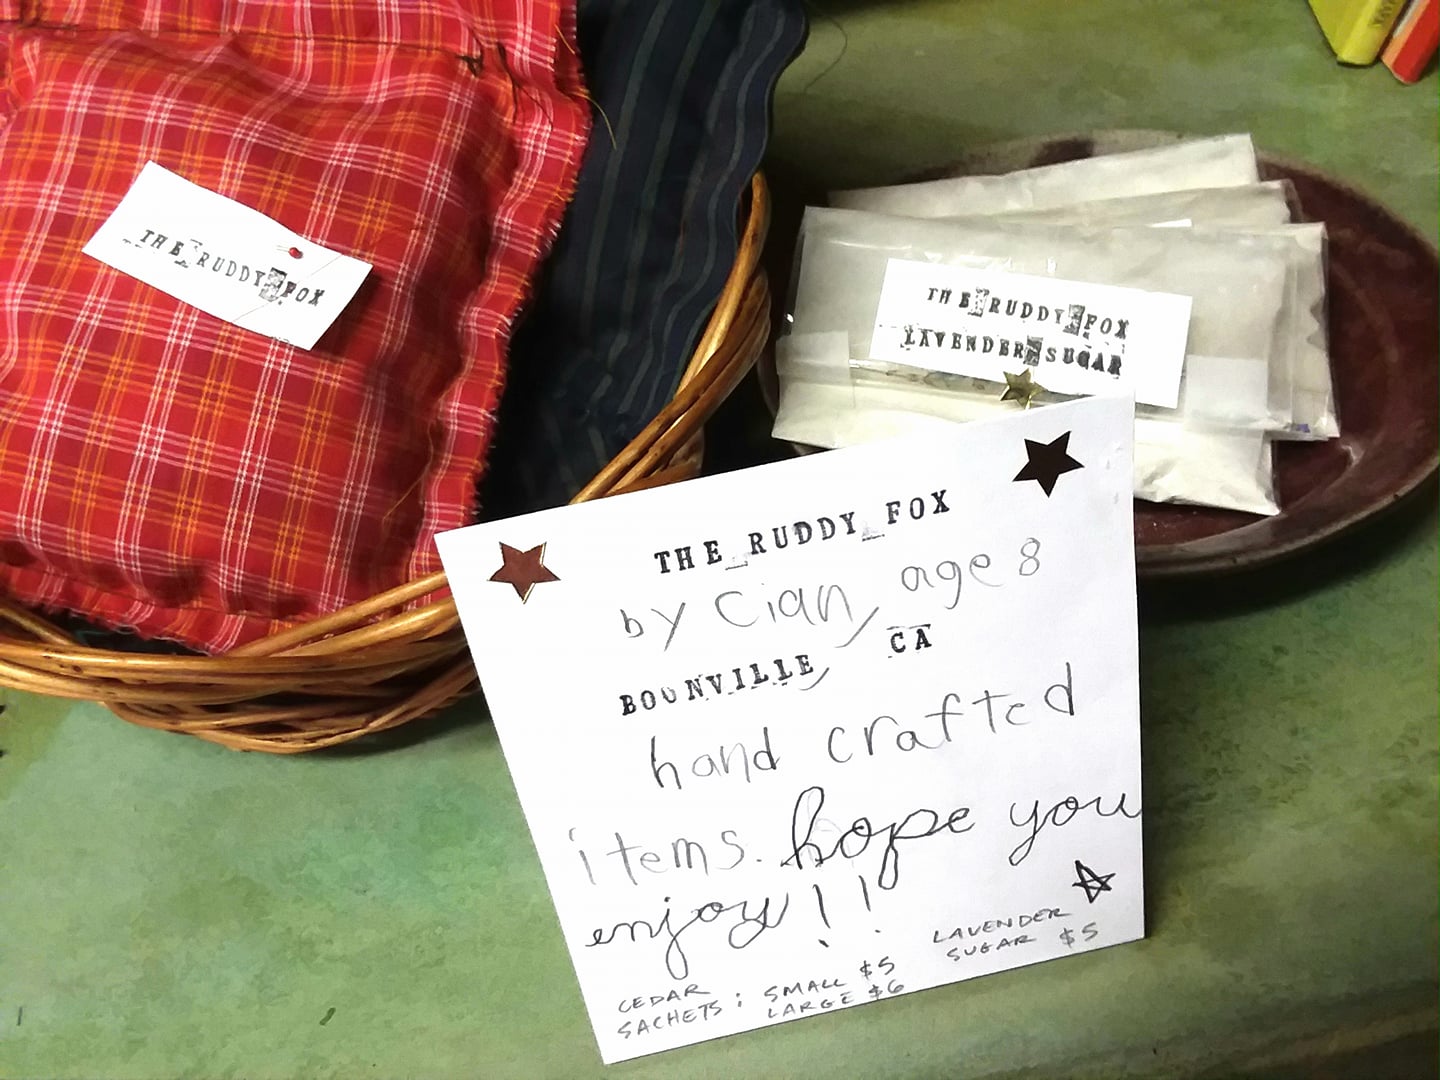 THE RUDDY FOX
THE RUDDY FOX
LAVENDER SUGAR
THE RUDDY FOX
by Cian, age 8
BOONVILLE, CA
hand crafted
items. hope you
enjoy!!
CEDAR
SACHETS: SMALL $5
LARGE $6
LAVENDER
SUGAR $5